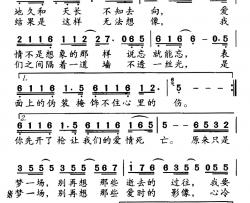 地久和 天长 不知去向， 爱
结果是 这样 无法想像， 我
2116 1116 122· 7· 065 6116 -0.5
情不是想象的那样 说忘 就能忘， 表
们之间隔着一道墙 不透一丝光， 是
1.
6116 1.5 6116 1.6
面上的伪装 掩饰不住心里的 伤。
2.
6116 1.5 6116 1.5 5- 0533
你先开了枪让我们的爱情死 亡。 原来只是
3555 5567 3555 5567
梦一场，别再想 那些 逝去的 过往，我要
梦一场，别再想 那些 爱时的 影像，心心